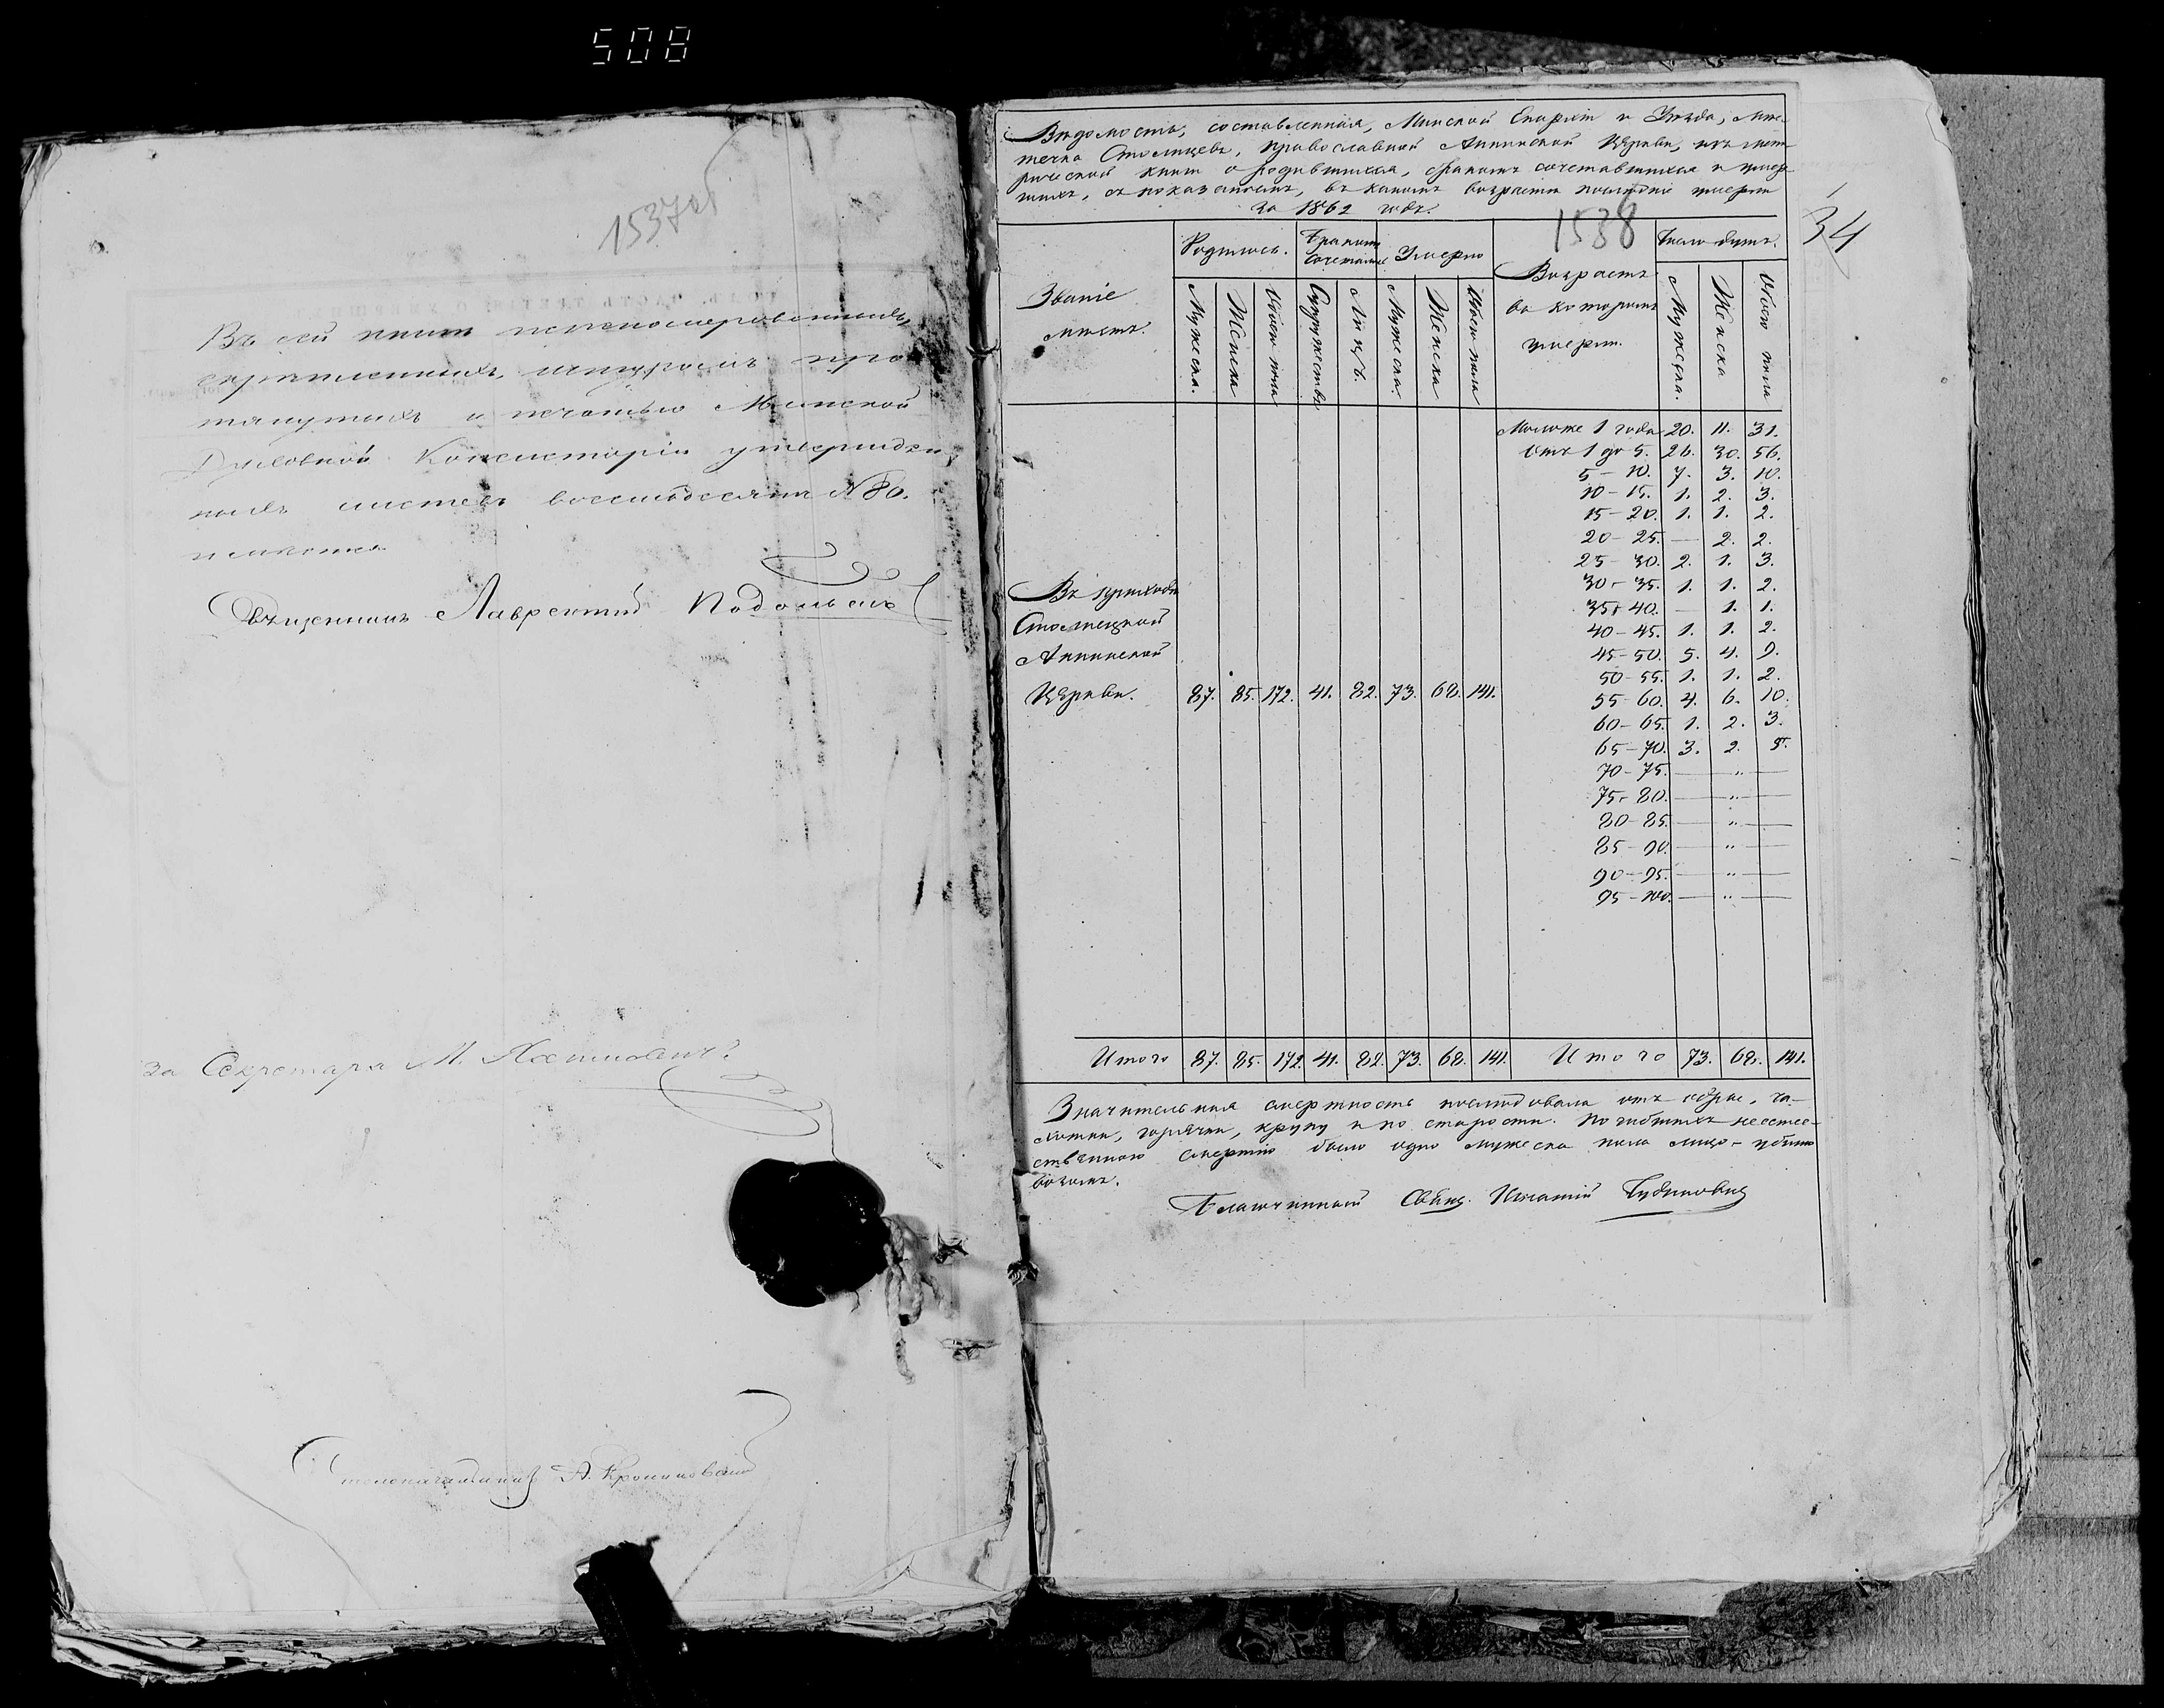 508
1537об
Въ сей книге перенумерованныхъ,
скрепленныхъ, шнуромъ про
тянутыхъ и печатью Минской
Духовной Консисторіи утвержден
ныхъ листовъ восемьдесятъ № 80.
Священникъ Лаврентий Подольскі
За Секретаря М.
Столоначальникъ А.
Вѣдомость, составленная, Минской Епархіи и Уѣзда, мѣс-
течка Столпцевъ, православной Аннинской Церкви, изъ мет-
рической книги о родившихся, бракомъ сочетавшихся и умер-
шихъ, съ показаніемъ, въ какомъ возрастѣ послѣдніе умерли
за 1862 годъ.
1538
34
Званіе мѣстъ. Родилось. Бракомъ сочетались Умерло Возрастъ въ которомъ умерли. Число душъ.
Мужеска. Женска Обоего пола Супружествъ Лицъ. Мужеска. Женска Обоего пола Мужеска. Женска Обоего пола
Моложе 1 года 20. 11. 31.
Отъ 1 до 5. 26. 30. 56.
5 - 10. 7. 3. 10.
10 - 15. 1. 2. 3.
15 - 20. 1. 1. 2.
20 - 25. — 2. 2.
25 - 30. 2. 1. 3.
30 - 35. 1. 1. 2.
35 - 40. — 1. 1.
40 - 45. 1. 1. 2.
45 - 50. 5. 4. 9.
50 - 55. 1. 1. 2.
55 - 60. 4. 6. 10.
60 - 65. 1. 2. 3.
65 - 70. 3. 2. 5.
70 - 75. — „ —
75 - 80. — „ —
80 - 85. — „ —
85 - 90. — „ —
90 - 95. — „ —
95 - 100. — „ —
Въ приходѣ
Столпецкой
Аннинской
Церкви. 87. 85. 172. 41. 82. 73. 68. 141.
Итого 87. 85. 172. 41. 82. 73. 68. 141. Итого 73. 68. 141.
Значительная смертность послѣдовала отъ кору, ча-
хотки, горячки, крупу и по старости. Погибшихъ неесте-
ственною смертію было одно мужеска пола лицо - убито
возомъ.
Благочинный Свящ. Игнатій